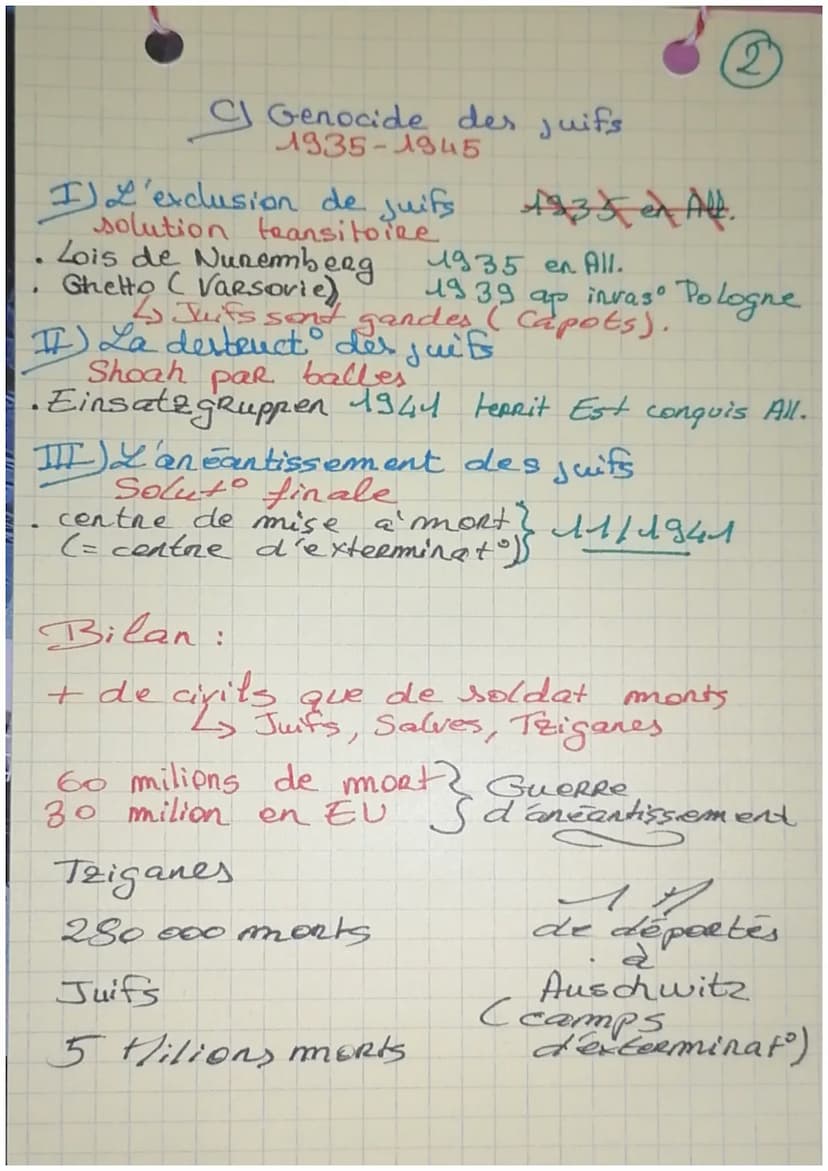 2
C) Genocide des juifs
1935-1945
I) L'exclusion de juifs 1935 en All.
solution transitoire
. Lois de Nuremberg 1935 en All.
. Ghetto (Varsovie) 1939 ap invas° Pologne
↳ Juifs sont gardes (Capots).
II) La destruct° des juifs
Shoah par balles
. Einsatzgruppen 1941 territ Est conquis All.
III) L'anéantissement des juifs
Solut° finale
. centre de mise à mort } 11/1941
(= centre d'exterminat°)}
Bilan :
+ de civils que de soldat morts
↳ Juifs, Salves, Tziganes
60 milions de mort } Guerre
30 milion en EU } d'anéantissement
Tziganes
280 000 morts
de déportés
à
Juifs
Auschwitz
(camps
5 Milions morts
d'exterminat°)